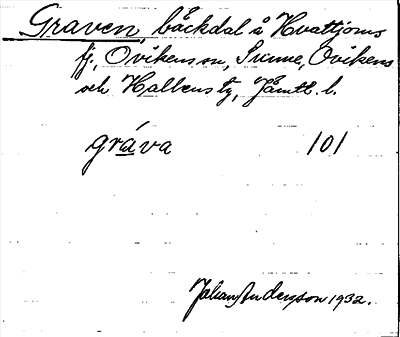 Graven, bäckdal å Hvattjoms
fj, Ovikens sn, Sunne, Ovikens
och Hallens tg, Jämtl. l.
gráva 101
Johan Anderzson 1932.